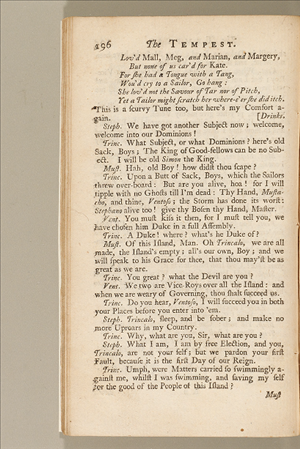 296 The TEMPEST.
Lov'd Mall, Meg, and Marian, and Margery,
But none of us car'd for Kate.
For she had a Tongue with a Tang,
Wou'd cry to a Sailor, Go hang:
She lov'd not the Savour of Tar nor of Pitch,
Yet a Tailor might scratch her where-e'er she did itch.
This is a scurvy Tune too, but here's my Comfort a-
gain. [Drinks.
Steph. We have got another Subject now; welcome,
welcome into our Dominions!
Trinc. What Subject, or what Dominions? here's old
Sack, Boys; The King of Good-fellows can be no Sub-
ject. I will be old Simon the King.
Must. Hah, old Boy! how didst thou scape?
Trinc. Upon a Butt of Sack, Boys, which the Sailors
threw over-board: But are you alive, hoa! for I will
tipple with no Ghosts till I'm dead: Thy Hand, Musta-
cho, and thine, Ventoso; the Storm has done its worst:
Stephano alive too! give thy Bosen thy Hand, Master.
Vent. You must kiss it then, for I must tell you, we
have chosen him Duke in a full Assembly.
Trinc. A Duke! where? what's he Duke of?
Must. Of this Island, Man. Oh Trincalo, we are all
made, the Island's empty; all's our own, Boy; and we
will speak to his Grace for thee, that thou may'st be as
great as we are.
Trinc. You great? what the Devil are you?
Vent. We two are Vice-Roys over all the Island: and
when we are weary of Governing, thou shalt succeed us.
Trinc. Do you hear, Ventoso, I will succeed you in both
your Places before you enter into 'em.
Steph. Trincalo, sleep, and be sober; and make no
more Uproars in my Country.
Trinc. Why, what are you, Sir, what are you?
Steph. What I am, I am by free Election, and you,
Trincalo, are not your self; but we pardon your first
Fault, because it is the first Day of our Reign.
Trinc. Umph, were Matters carried so swimmingly a-
gainst me, whilst I was swimming, and saving my self
for the good of the People of this Island?
Must